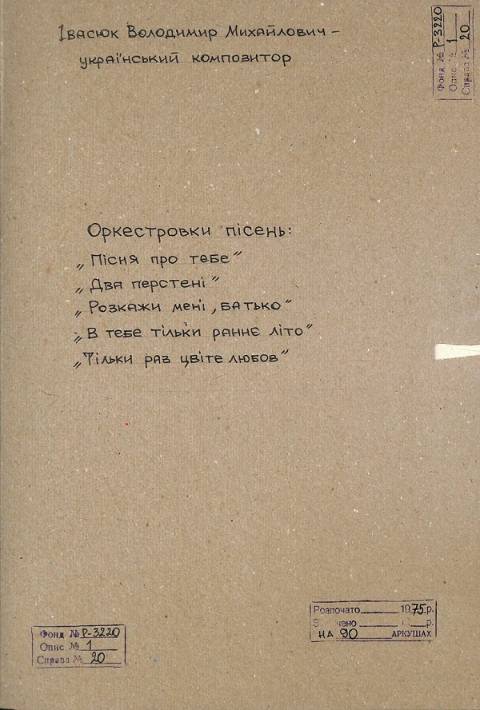 Івасюк Володимир Михайлович –
український композитор
Фонд № Р-3220
Опис № 1
Справа № 20
Оркестровки пісень:
„Пісня про тебе"
„Два перстені"
„Розкажи мені, батько"
„В тебе тільки раннє літо"
„Тільки раз цвіте любов"
Розпочато 1975 р.
р.
НА 90 АРКУШАХ
Фонд № Р-3220
Опис № 1
Справа № 20